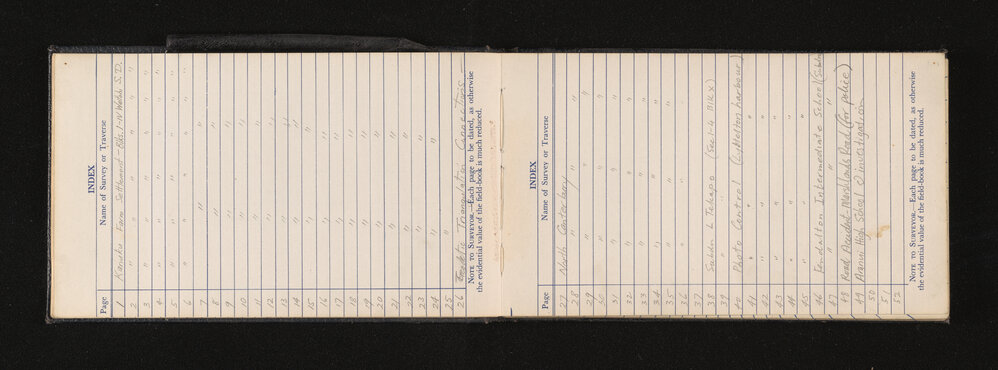 INDEX
Page Name of Survey or Traverse
1 Farm Settlement - Blks. I-IV S.D.
2 " " " " "
3 " " " " "
4 " " " " "
5 " " " " "
6 " " " " "
7 " "
8 " "
9 " "
10 " "
11 " "
12 " "
13 " "
14 " "
15 " "
16 " "
17 " "
18 " "
19 " "
20 " "
21 " "
22 " "
23 " "
24 " "
25 "
26 Geodetic Triangulation Connections
NOTE TO SURVEYOR.—Each page to be dated, as otherwise
the evidential value of the field-book is much reduced.
INDEX
Page Name of Survey or Traverse
27 North Canterbury
28 " " " "
29 " " " "
30 " " " "
31 " " " "
32 " " " "
33 " " " "
34 " " " "
35 " " " "
36 " "
37
38 Subdn L. Tekapo (Sec. 1-4 Blk X)
39 "
40 Photo Control (Lyttelton harbour)
41 " " "
42 " " "
43 " " "
44 " " "
45 " " "
46 Fendalton Intermediate School
47 " " "
48 Road Accident - Marshlands Road (for police)
49 Aranui High School investigation
50
51
52
NOTE TO SURVEYOR.—Each page to be dated, as otherwise
the evidential value of the field-book is much reduced.